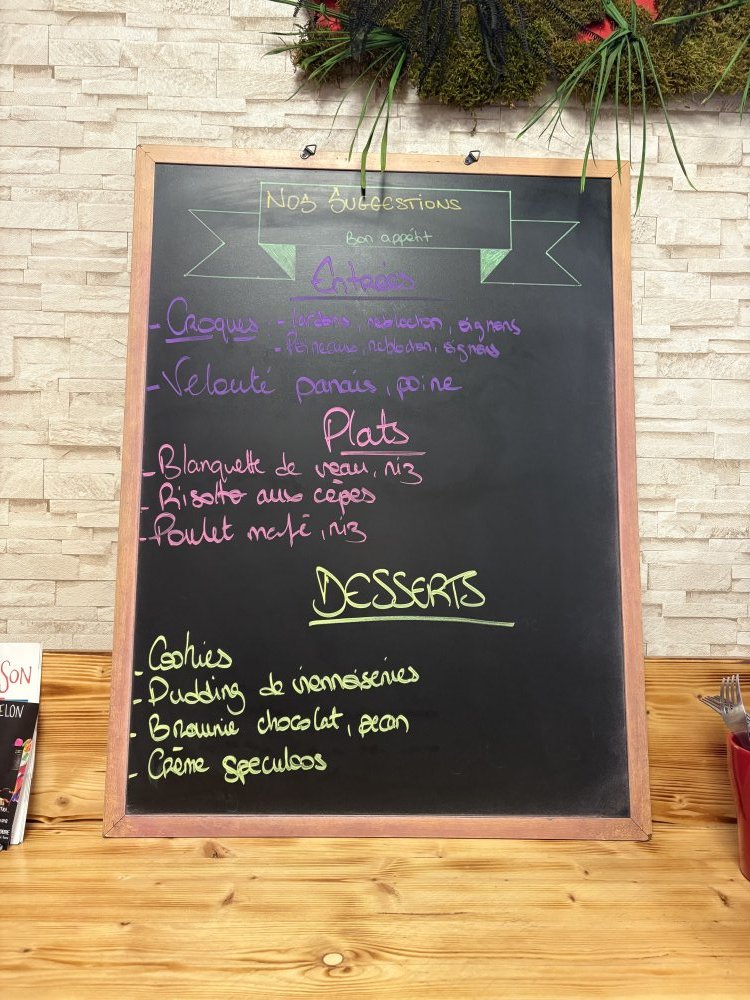 NOS SUGGESTIONS
Bon appétit
Entrées
- Croques - Lardons, reblochon, oignons
- Poireaux, reblochon, oignons
- Velouté panais, poire
Plats
- Blanquette de veau, riz
- Risotto aux cèpes
- Poulet mafé, riz
DESSERTS
- Cookies
- Pudding de viennoiseries
- Brownie chocolat, pecan
- Crème speculoos
SON
ELON